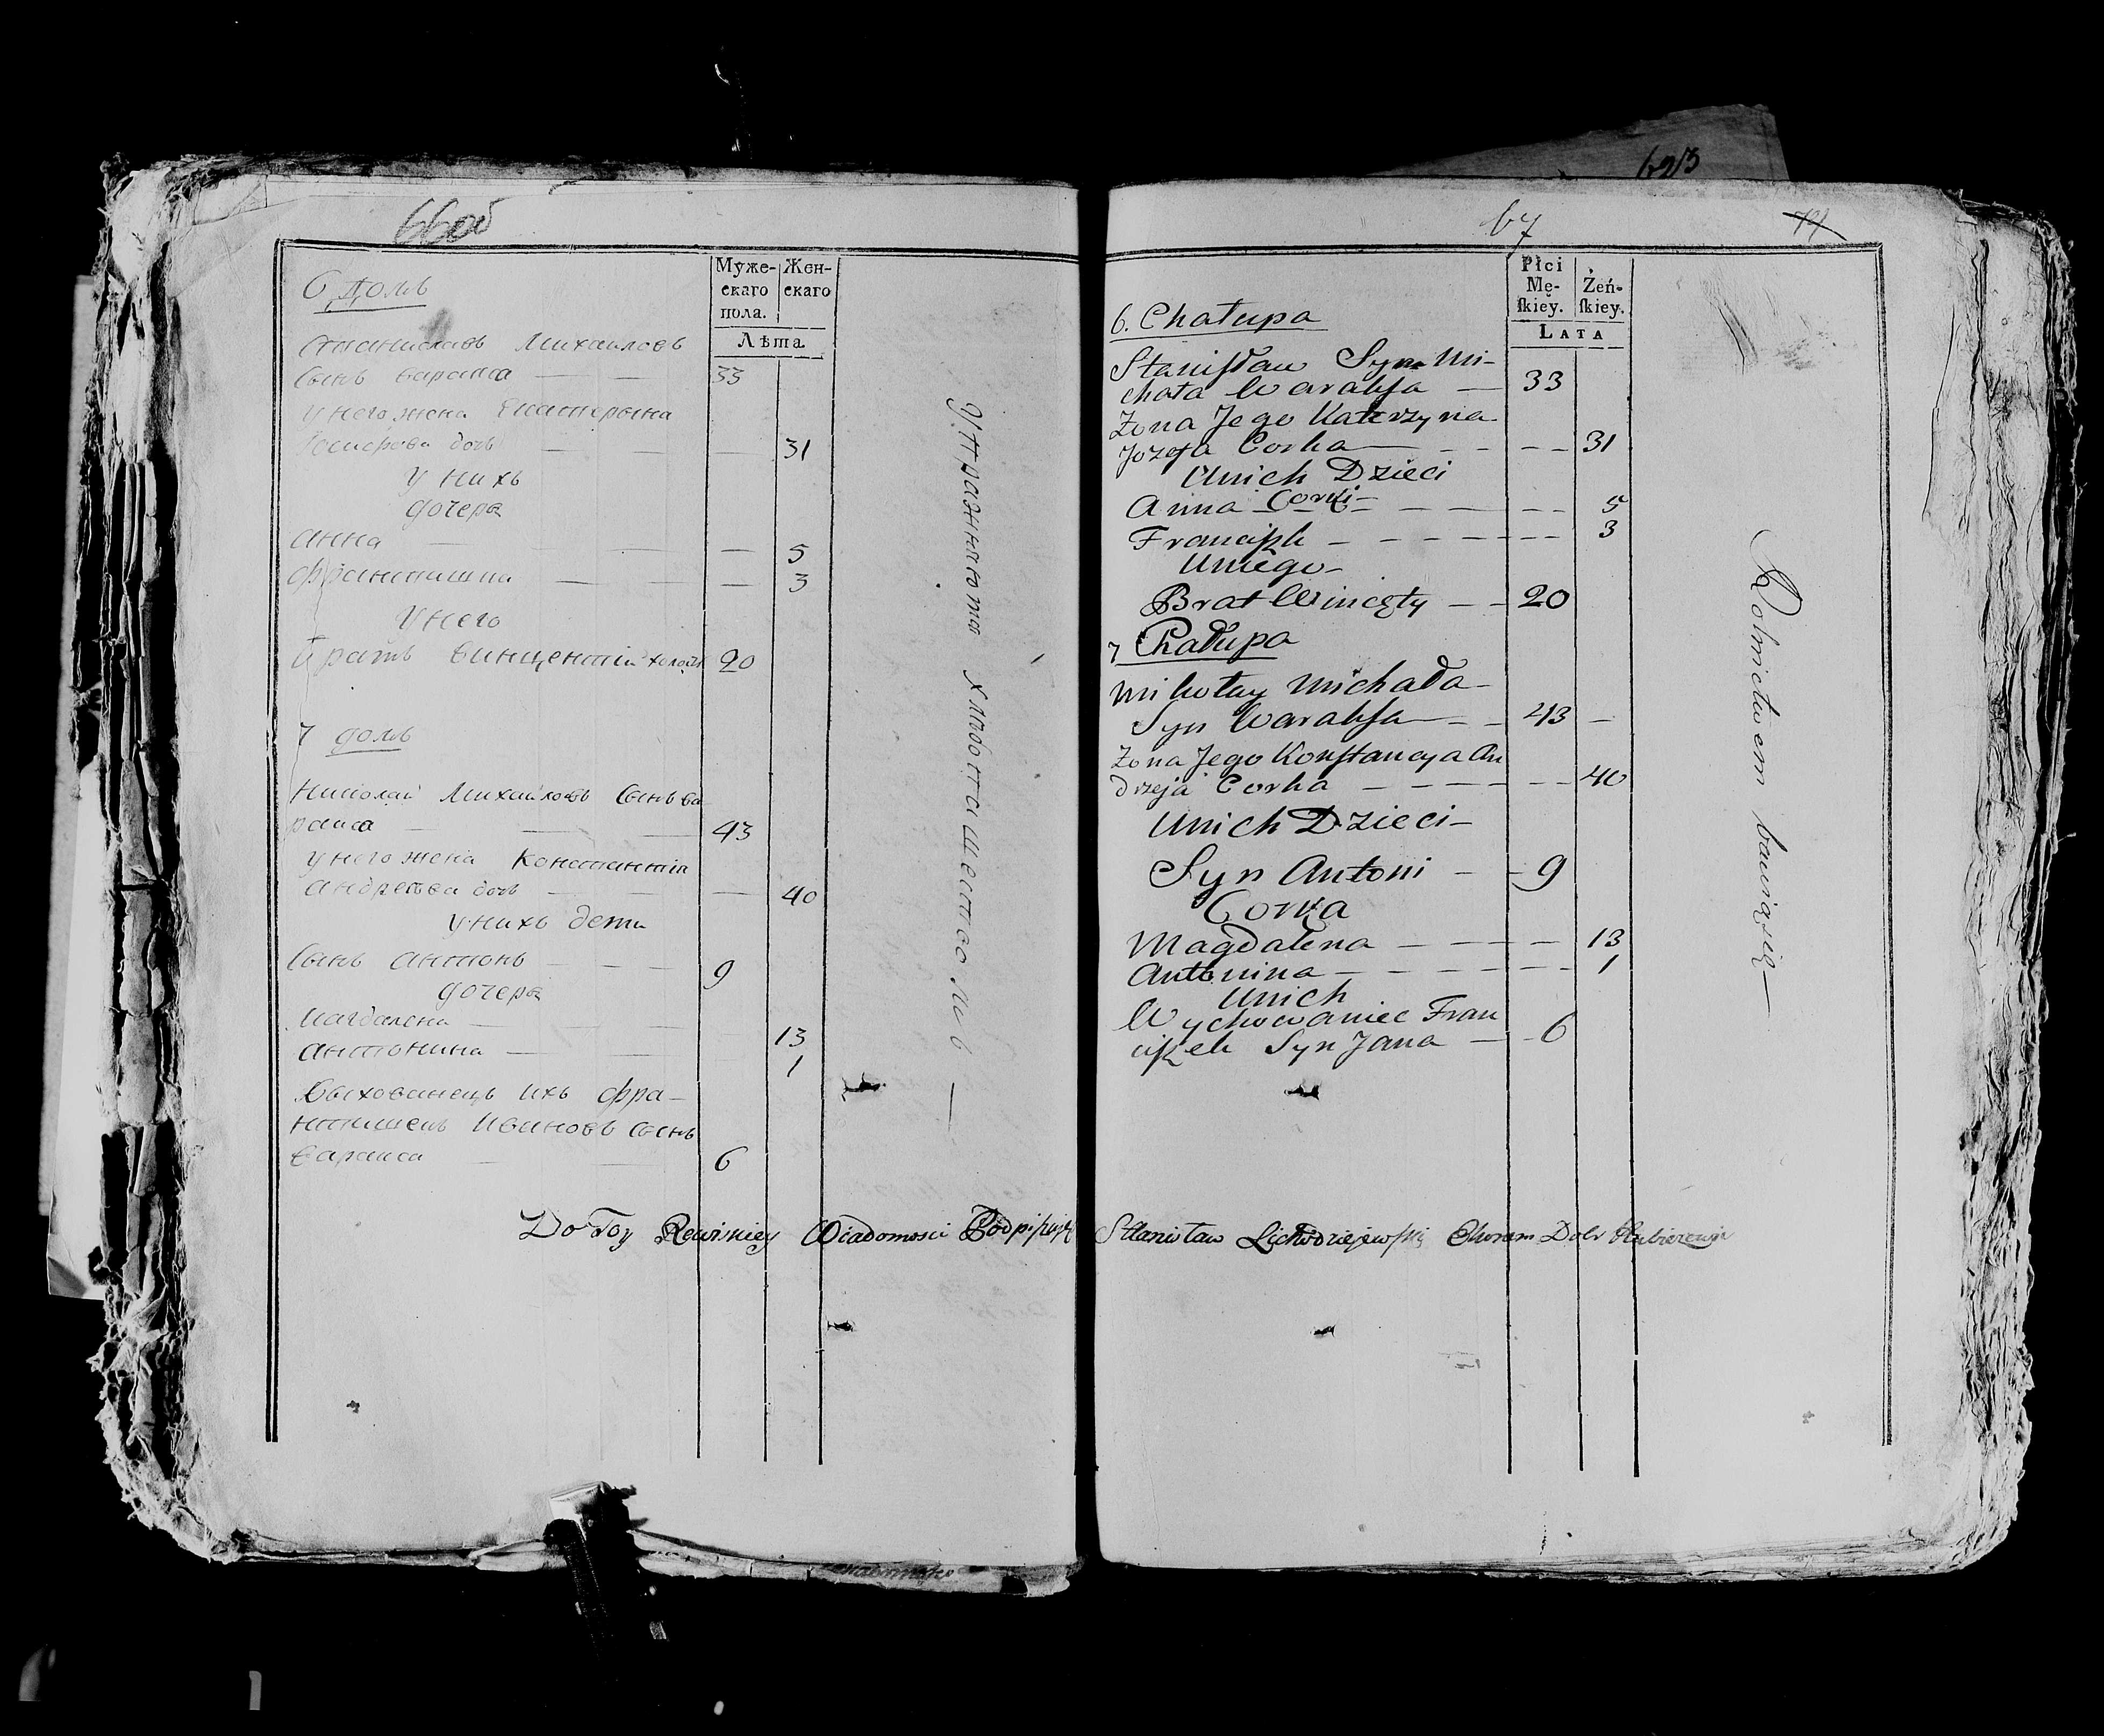 66об
6 домъ
Муже-
скаго
пола.
Жен-
скаго
Лѣта
Станиславъ Михаиловъ
сынъ варакса — — 33
у него жена Екатерына
Іосифова дочь — — — 31
у нихъ
дочера
Анна — — — 5
Францишка — — 3
у него
братъ Винцентій 20
7 домъ
Николай Михайловъ сынъ ва
ракса — — — 43
у него жена Константія
Андреева дочь — — — 40
у нихъ дети
сынъ Антонъ — — — 9
дочера
Магдалена — 13
Антонина — — 1
Выхованецъ ихъ Фра-
нтишекъ Ивановъ сынъ
варакса — — 6
Упражняются хлѣбопашествомъ —
67
6. Chałupa
Płci
Mę-
ſkiey.
Żeń-
ſkiey.
LATA
Staniſław Syn Mi-
chała Warakſa — 33
Żona Jego Katerzyna
Jozefa Corka — — — — 31
Unich Dzieci
Corki
Anna — — — — — 5
Franciſzk — — — — — — 3
Uniego
Brat Wincęty — — 20
7 Chałupa
Mikołay Michała
Syn Warakſa — — 43 —
Żona Jego Konſtancya An
drzeja Corka — — — — — 40
Unich Dzieci —
Syn Antoni — — 9
Corka
Magdalena — — — — 13
Antonina — — — — — — 1
Unich
Wychowaniec Fran
ciſzek Syn Jana — — 6
Rolnictwem bawią się —
Do Toy Rewiskiey Wiadomosci Podpiſuię Stanisław Lichodziejewſki